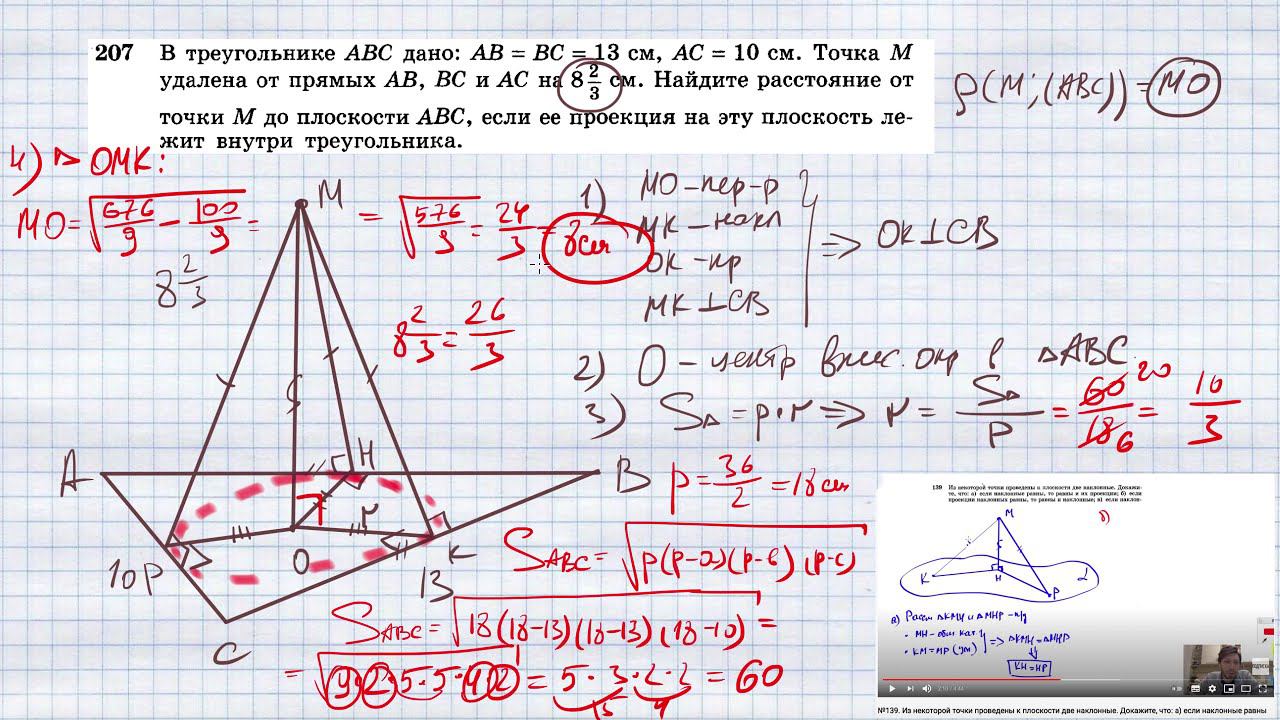 207 В треугольнике ABC дано: AB = BC = 13 см, AC = 10 см. Точка M
удалена от прямых AB, BC и AC на 8 2/3 см. Найдите расстояние от
точки M до плоскости ABC, если ее проекция на эту плоскость ле-
жит внутри треугольника.
ρ(M; (ABC)) = MO
4) △ OMK:
MO = √(676/9 − 100/9) =
= √(576/9) = 24/3 = 8см
8 2/3
8 2/3 = 26/3
M
A
H
B
O
r
K
10 P
13
C
1) MO – пер-р
MK – накл
OK – пр
MK ⊥ CB
=> OK ⊥ CB
2) O – центр впис. окр в △ABC
3) S△ = p·r => r = S△/P = 60/18 = 10/3
20
6
p = 36/2 = 18 см
S ABC = √(p(p−a)(p−b)(p−c)
S ABC = √(18(18−13)(18−13)(18−10) =
= √(9·2·5·5·4·2 = 5·3·2·2 = 60
15
4
139 Из некоторой точки проведены к плоскости две наклонные. Докажи-
те, что: а) если наклонные равны, то равны и их проекции; б) если
проекции наклонных равны, то равны и наклонные; в) если наклон-
б)
M
K
H
P
α
а) Рассм △KMH и △MHP – п/у
• MH – общ кат
• KM = MP (усл)
=> △KMH = △MHP
KH = HP
2:10 / 4:44
№139. Из некоторой точки проведены к плоскости две наклонные. Докажите, что: а) если наклонные равны